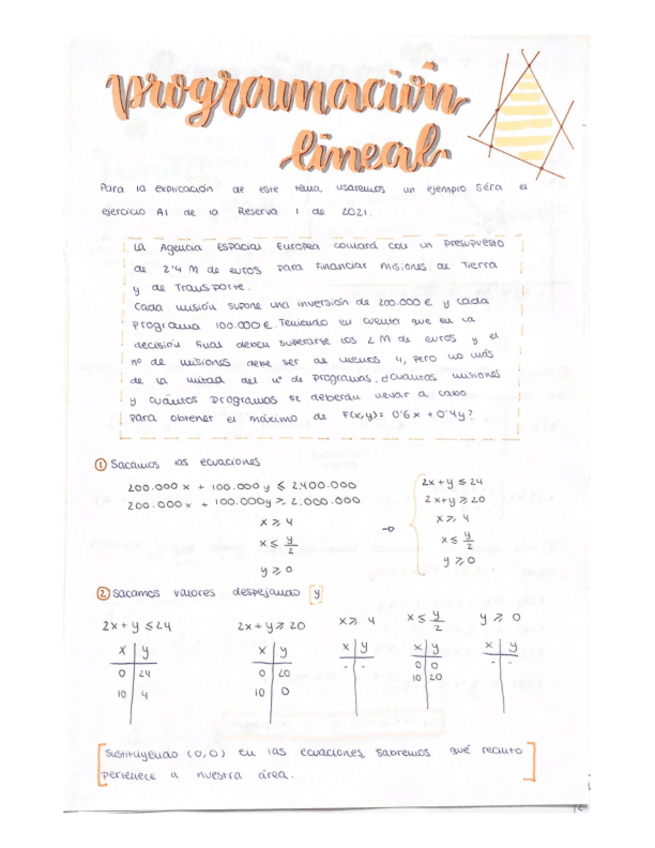 programación
lineal
Para la explicación de este tema, usaremos un ejemplo Sera el
ejercicio A1 de la Reserva 1 de 2021.
La Agencia Espacial Europea contará con un presupuesto
de 2'4 M de euros para financiar misiones de Tierra
y de Transporte.
Cada misión supone una inversión de 200.000 € y cada
programa 100.000 €. Teniendo en cuenta que en la
decisión final deben superarse los 2 M de euros y el
nº de misiones debe ser al menos 4, pero no más
de la mitad del nº de programas, ¿cuántas misiones
y cuántos programas se deberán llevar a cabo
para obtener el máximo de F(x,y) = 0'6x + 0'4y?
① Sacamos las ecuaciones
200.000 x + 100.000 y ≤ 2.400.000
200.000 x + 100.000y ≥ 2.000.000
x ≥ 4
x ≤ y/2
y ≥ 0
→
2x + y ≤ 24
2x+y ≥ 20
x ≥ 4
x ≤ y/2
y ≥ 0
② Sacamos valores despejando y
2x + y ≤ 24 2x + y ≥ 20 x ≥ 4 x ≤ y/2 y ≥ 0
x y x y x y x y x y
0 24 0 20 - - 0 0 - -
10 4 10 0 10 20
Sustituyendo (0,0) en las ecuaciones sabremos qué recinto
pertenece a nuestra área.